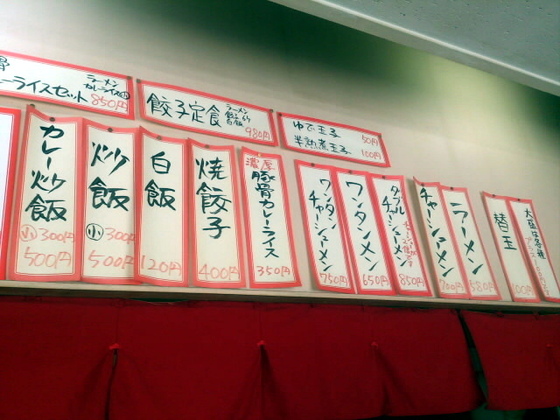 ーライスセット
ラーメン
カレーライス小
850円
餃子定食
ラーメン
餃子6ケ
白飯
980円
ゆで玉子 50円
半熟煮玉子 100円
カレー炒飯
小 300円
500円
炒飯
小 300円
500円
白飯
120円
焼餃子
400円
濃厚
豚骨カレーライス
350円
ワンタン
チャーシューメン
750円
ワンタンメン
650円
ダブル
チャーシューメン
850円
チャーシューメン
700円
ラーメン
580円
替玉
100円
大盛は各種